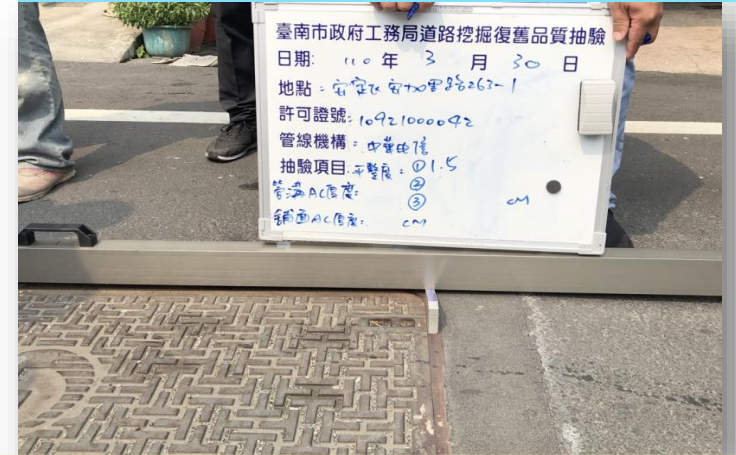 臺南市政府工務局道路挖掘復舊品質抽驗
日期: 110 年 3 月 30 日
地點:安定區安加里 263-1
許可證號:10921000042
管線機構:中華電信
抽驗項目:平整度:①1.5
管溝AC厚度: ②
③ cM
鋪面AC厚度: cM